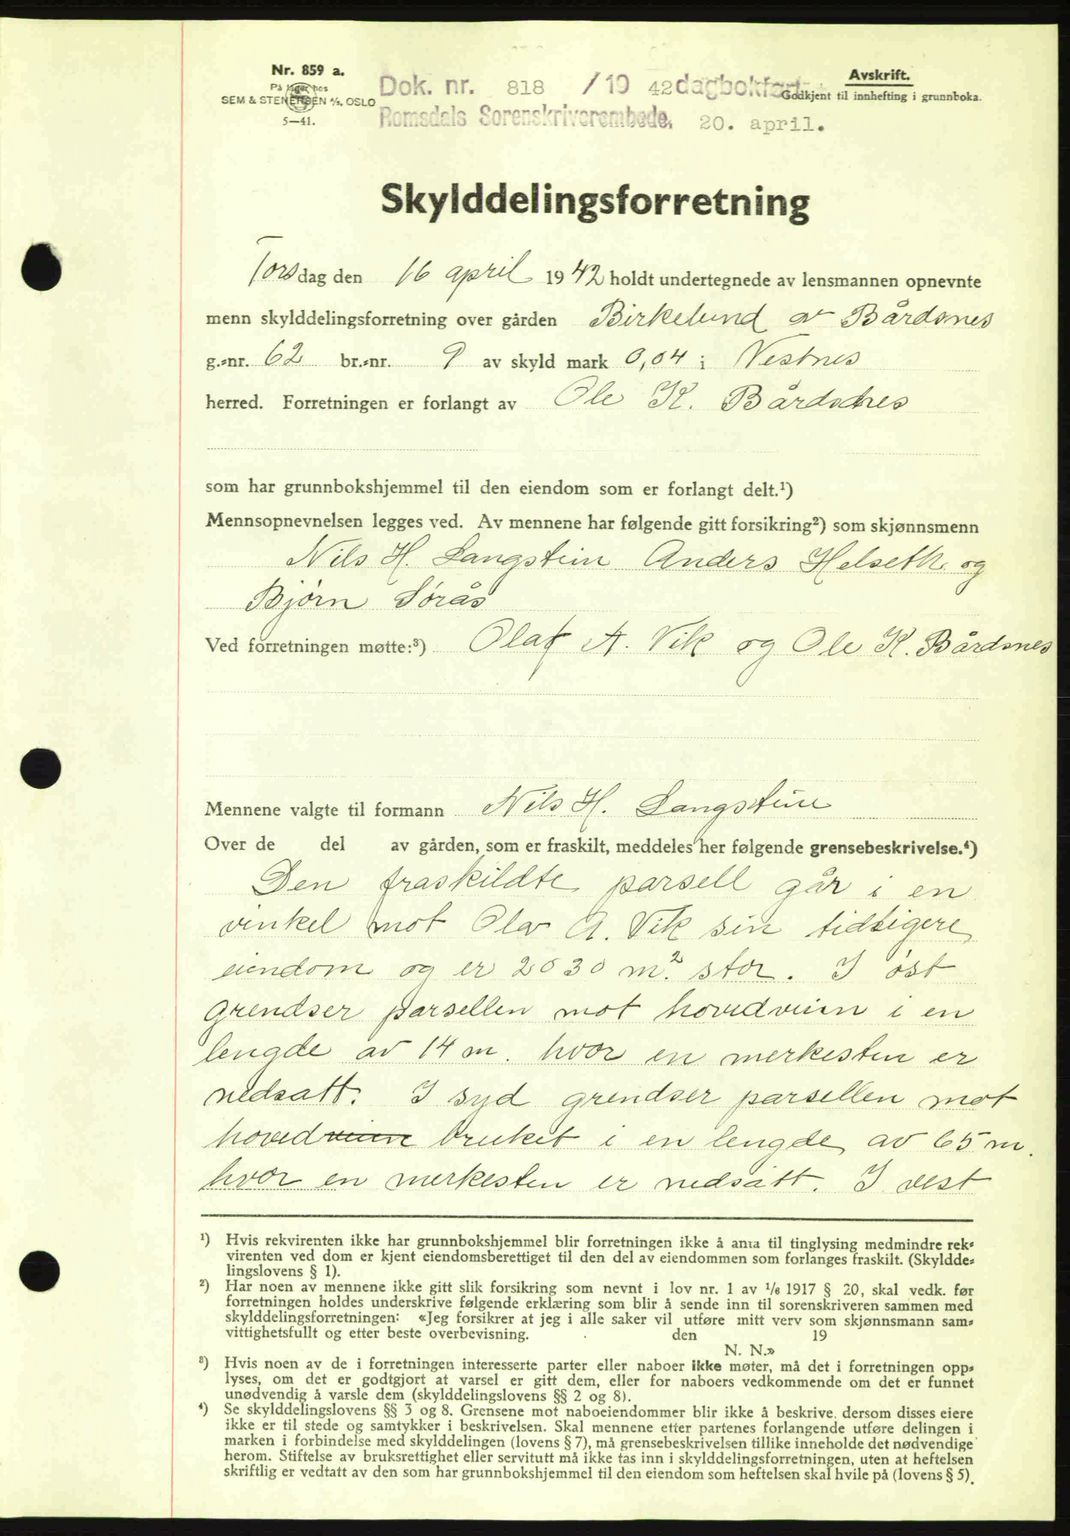 Nr. 859 a.
På lager hos
SEM & STENERSEN A/S, OSLO
5—41.
Dok. nr. 818 /19 42 dagbokført
Romsdals Sorenskriverembede. 20. april.
Avskrift.
Godkjent til innhefting i grunnboka.
Skylddelingsforretning
Torsdag den 16 april 1942 holdt undertegnede av lensmannen opnevnte
menn skylddelingsforretning over gården Birkelund av Bårdsnes
g.-nr. 62 br.-nr. 9 av skyld mark 0,04 i Vestnes
herred. Forretningen er forlangt av Ole K. Bårdsnes
som har grunnbokshjemmel til den eiendom som er forlangt delt.¹)
Mennsopnevnelsen legges ved. Av mennene har følgende gitt forsikring²) som skjønnsmenn
Nils H. Langstein Anders Helseth og
Bjørn Sørås
Ved forretningen møtte:³) Olaf A. Vik og Ole K. Bårdsnes
Mennene valgte til formann Nils H. Langstein
Over de del av gården, som er fraskilt, meddeles her følgende grensebeskrivelse.⁴)
Den fraskildte parsell går i en
vinkel mot Olav A. Vik sin tidligere
eiendom og er 2030 m² stor. I øst
grendser parsellen mot hovedveien i en
lengde av 14 m. hvor en merkesten er
nedsatt. I syd grendser parsellen mot
hovedveien bruket i en lengde av 65 m.
hvor en merkesten er nedsatt. I vest
¹) Hvis rekvirenten ikke har grunnbokshjemmel blir forretningen ikke å anta til tinglysing medmindre rek-
virenten ved dom er kjent eiendomsberettiget til den del av eiendommen som forlanges fraskilt. (Skyldde-
lingslovens § 1).
²) Har noen av mennene ikke gitt slik forsikring som nevnt i lov nr. 1 av 1/6 1917 § 20, skal vedk. før
forretningen holdes underskrive følgende erklæring som blir å sende inn til sorenskriveren sammen med
skylddelingsforretningen: «Jeg forsikrer at jeg i alle saker vil utføre mitt verv som skjønnsmann sam-
vittighetsfullt og etter beste overbevisning. den 19
N. N.»
³) Hvis noen av de i forretningen interesserte parter eller naboer ikke møter, må det i forretningen opp-
lyses, om det er godtgjort at varsel er gitt dem, eller for naboers vedkommende om det er funnet
unødvendig å varsle dem (skylddelingslovens §§ 2 og 8).
⁴) Se skylddelingslovens §§ 3 og 8. Grensene mot naboeiendommer blir ikke å beskrive, dersom disses eiere
ikke er til stede og samtykker i beskrivelsen. Skal mennene etter partenes forlangende utføre delingen i
marken i forbindelse med skylddelingen (lovens § 7), må grensebeskrivelsen tillike inneholde det nødvendige
herom. Stiftelse av bruksrettighet eller servitutt må ikke tas inn i skylddelingsforretningen, uten at heftelsen
skriftlig er vedtatt av den som har grunnbokshjemmel til den eiendom som heftelsen skal hvile på (lovens § 5).